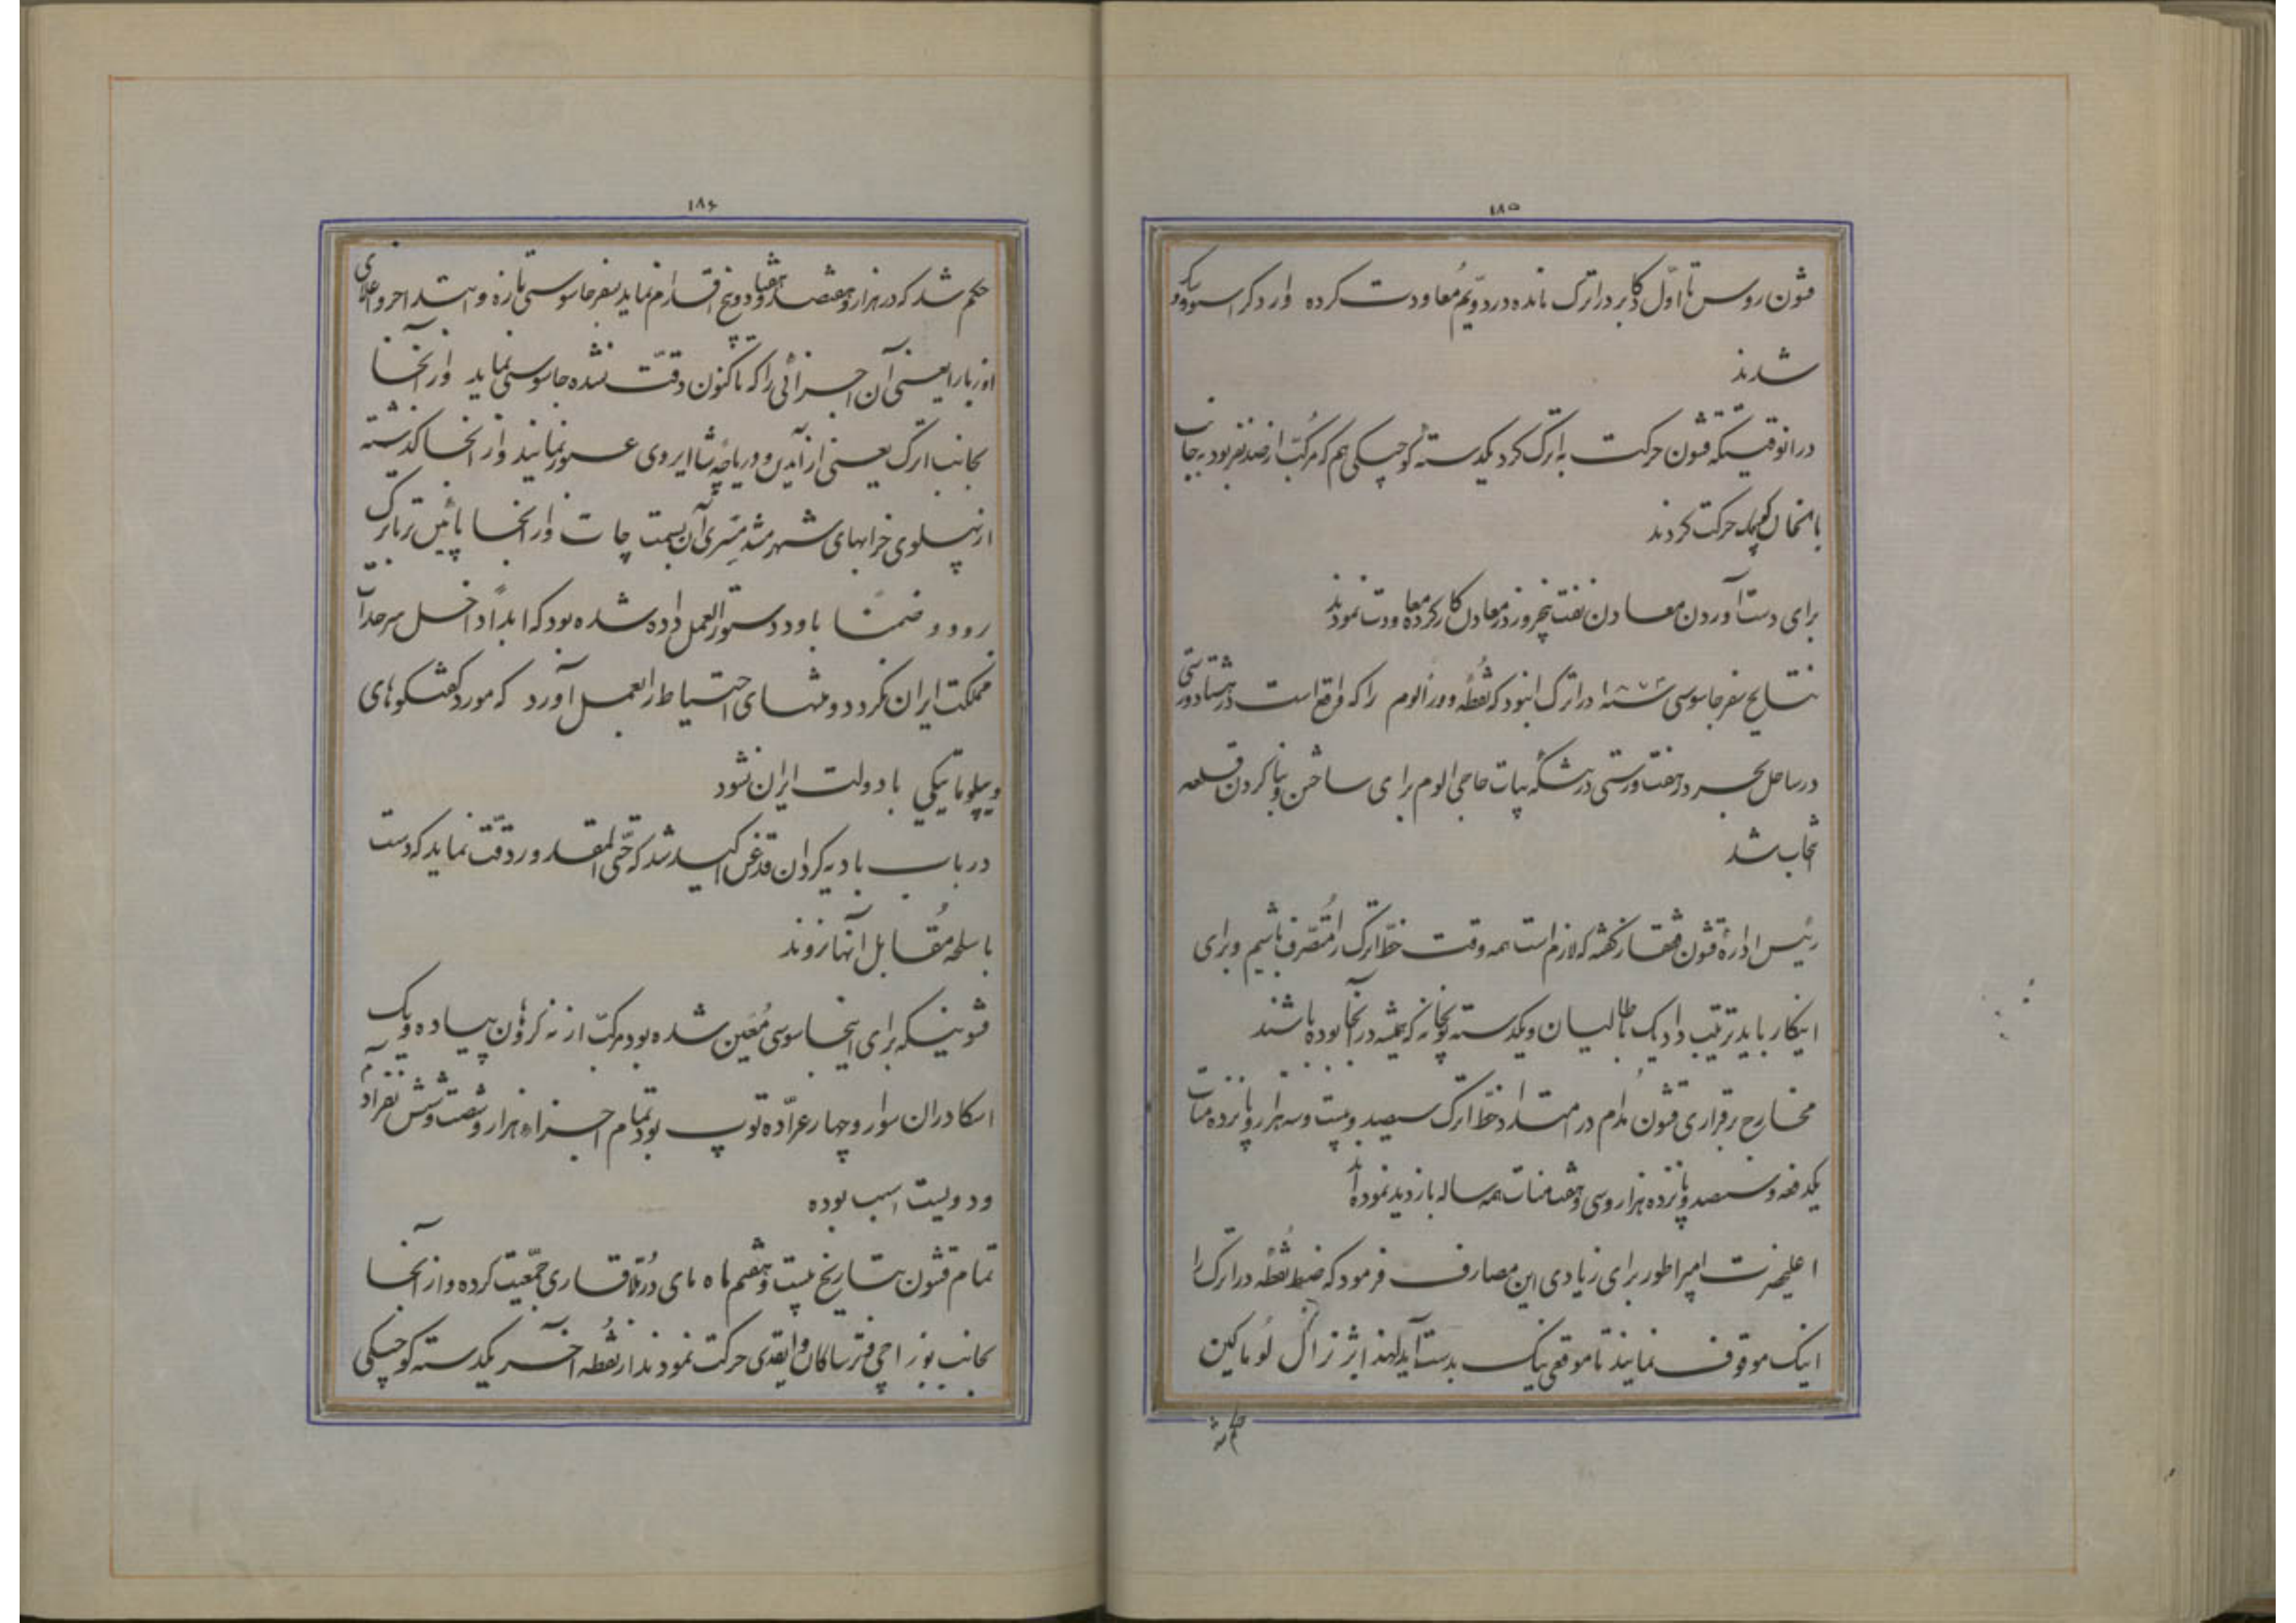 ۱۸۵
قشون روس تا اوّل دکابر در اترک مانده در دویّم مُعاودت کرده وارد کراسنوودسکی
شدند
در انوقتیکه قشون حرکت به اترک کرد یکدسته کوچکی هم که مرکّب از صد نفر بود بجانب
بالخان کوچک حرکت کردند
برای دست آوردن معادن نفت پنجروز در معادن کار کرده معاودت نمودند
نتایج سفر جاسوسی ۱۸۷۴ در اترک این بود که نقطهٔ را که واقع است در هشتاد ورستی
در ساحل بحر در هفت ورستی بیات حاجی الوم برای ساختن و بنا کردن قلعه
انتخاب شد
رئیس ادارهٔ قشون قفقاز گفته که لازم است همه وقت خطّ اترک را متصّرف باشیم و برای
اینکار باید ترتیب داد یک باطالیان و یکدسته توپخانه که همیشه در آنجا بوده باشند
مخارج برقراری قشون مُدام در امتداد خطّ اترک سیصد و بیست و سه هزار و پانزده منات
یکدفعه و سیصد و پانزده هزار و سی و هفت منات همه ساله بازدید نموده‌اند
اعلیحضرت امپراطور برای زیادی این مصارف فرمود که ضبط نقطهٔ در اترک را
اینک موقوف نمایند تا موقع نیک بدست آید لهذا بژنرال لُوماکین
حکم شد
۱۸۶
حکم شد که در هزار و هشتصد و هفتاد و پنج اقدام نماید بسفر جاسوسی تازه و ابتدا
اوزبای را یعنی آن اجزائی را که تاکنون دقّت نشده جاسوسی نماید و از آنجا
بجانب اترک یعنی از آیدین و دریاچهٔ عبور نمایند و از آنجا گذشته
از پهلوی خرابهای شهر مشد مَسری آن بسمت چات و از آنجا پائین تر باترک
برود و ضمناً باو دستورالعمل داده شده بود که ابداً داخل سرحدات
مملکت ایران نگردد و منتهای احتیاط را بعمل آورد که مورد گفتگوهای
دیپلوماتیکی با دولت ایران نشود
در باب بادیه گردان قدغن اکید شد که حتّی المقدور دقّت نماید که دست
باسلحه مُقابل آنها نزوند
قشونیکه برای اینجاسوسی مُعیّن شده بود مرکّب از نه گروهان پیاده و یک
اسکادران سوار و چهار عرّاده توپ بود تمام اجزاء هزار و شصت و شش نفر آدم
و دویست اسب بوده
تمام قشون بتاریخ بیست و هفتم ماه مای در مُلّا قاری جمعیّت کرده و از آنجا
بجانب بوزراجی و ترساکان و ایقدی حرکت نمودند از نقطه آخر یکدسته کوچکی